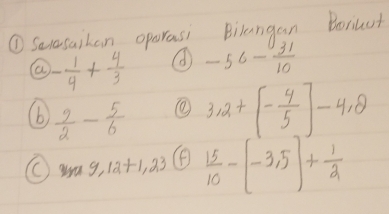 ① Selasaikan oparasi Bilangan Borikut
ⓐ -1/4 + 4/3 ⓓ -56 - 31/10
ⓑ 2/2 - 5/6 ⓔ 3,2 + [-4/5] - 4,8
ⓒ 9,12 + 1,23 ⓕ 15/10 - [-3,5] + 1/2